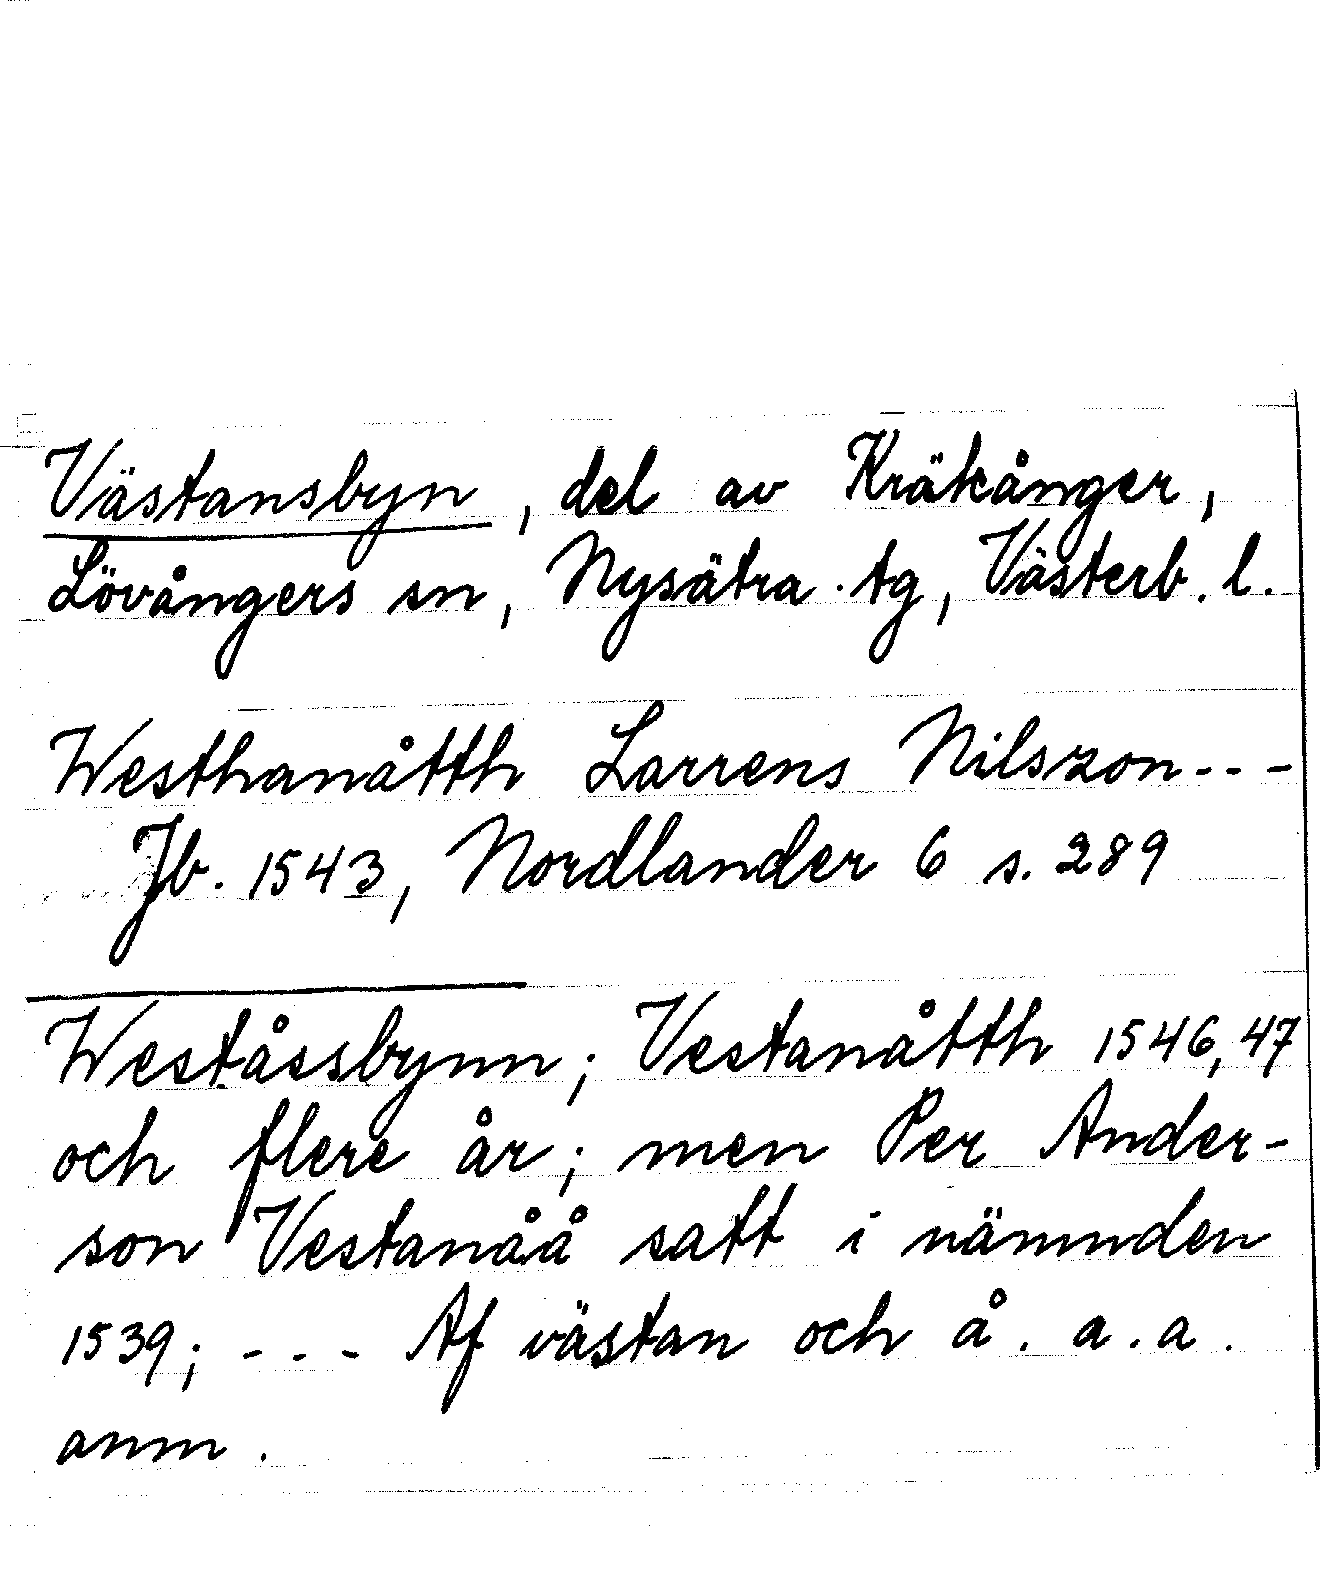 Västansbyn, del av Kräkånger,
Lövångers sn, Nysätra tg, Västerb. l.
Westhanåtth Larrens Nilszon - - -
Jb. 1543, Nordlander 6 s. 289
Weståssbynn; Vestanåtth 1546, 47
och flere år; men Per Ander-
son Vestanåå satt i nämnden
1539; - - - Af västan och å. a. a.
anm.